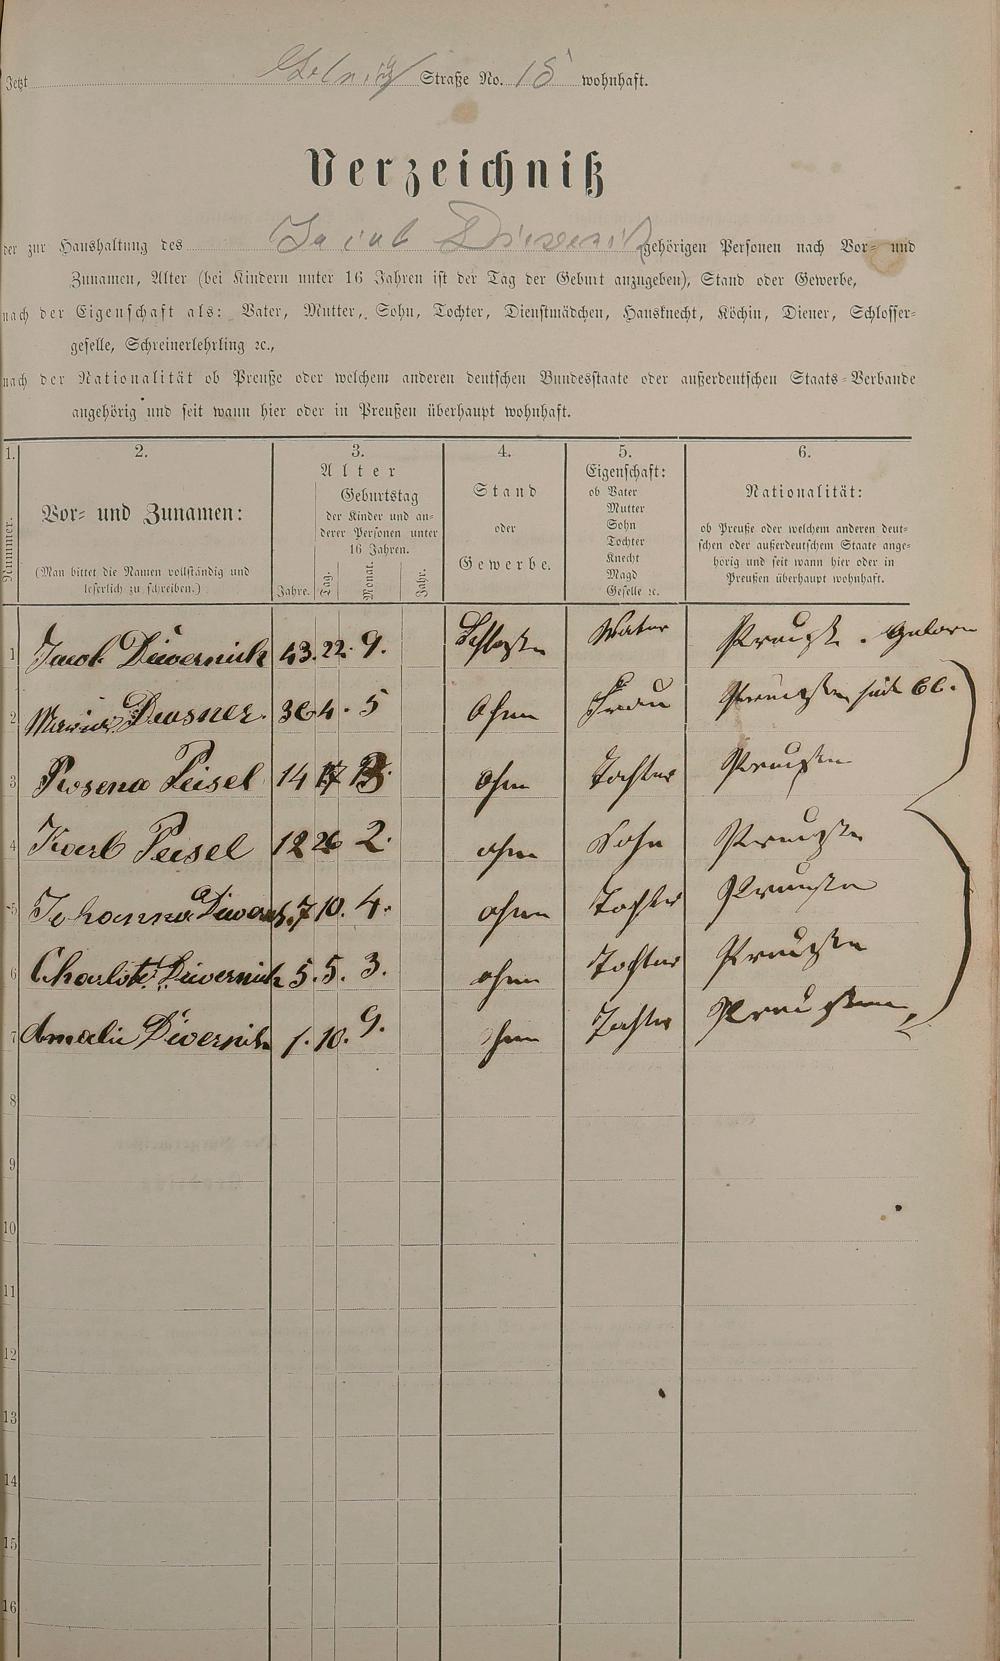 Jetzt Straße No. 18 wohnhaft.
Verzeichniß
der zur Haushaltung des Jacob gehörigen Personen nach Vor- und
Zunamen, Alter (bei Kindern unter 16 Jahren ist der Tag der Geburt anzugeben), Stand oder Gewerbe,
nach der Eigenschaft als: Vater, Mutter, Sohn, Tochter, Dienstmädchen, Hausknecht, Köchin, Diener, Schlosser-
geselle, Schreinerlehrling ꝛc.,
nach der Nationalität ob Preuße oder welchem anderen deutschen Bundesstaate oder außerdeutschen Staats-Verbande
angehörig und seit wann hier oder in Preußen überhaupt wohnhaft.
1. 2. 3. 4. 5. 6.
Nummer.
Vor- und Zunamen:
(Man bittet die Namen vollständig und
leserlich zu schreiben.)
Alter
Geburtstag
der Kinder und an-
derer Personen unter
16 Jahren.
Jahre. Tag. Monat. Jahr.
Stand
oder
Gewerbe.
Eigenschaft:
ob Vater
Mutter
Sohn
Tochter
Knecht
Magd
Geselle ꝛc.
Nationalität:
ob Preuße oder welchem anderen deut-
schen oder außerdeutschem Staate ange-
hörig und seit wann hier oder in
Preußen überhaupt wohnhaft.
1 Jacob Düvernich 43. 22. 9. Vater Geborn
2 36 4. 5 Ohne Frau Preußen seit 66.
3 Rosena Peisel 14 Ohne Tochter Preußen
4 Karl Peisel 12 26 2. ohne Sohn Preußen
5 Johanna 7 10. 4. ohne Tochter Preußen
6 Charlote Düvernich 5. 5. 3. ohne Tochter Preußen
7 Amalie Düvernich 1. 10. 9. ohne Tochter Preußen
8
9
10
11
12
13
14
15
16